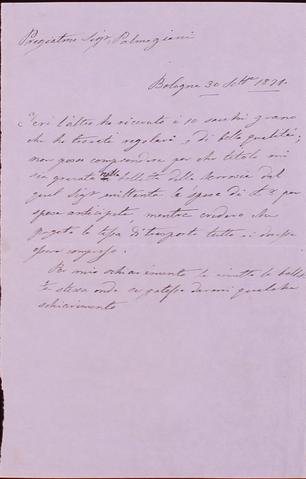 Pregiatmo Sigr. Palmegiani
Bologna 30 Settre 1871.
Ieri l'altro ho ricevuto i 10 sacchi grano
che ho trovati regolari, e di bella qualità;
non posso comprendere per che titolo mi
sia gravata nella bolletta della ferrovia dal
quel Sigr mittente le spese di
spese anticipate, mentre credevo che
pagata la tassa di trasporto tutto
fosse compreso.
Per mio schiarimento le rimetto la bolletta
stessa onde ella potesse darmi qualche
schiarimento